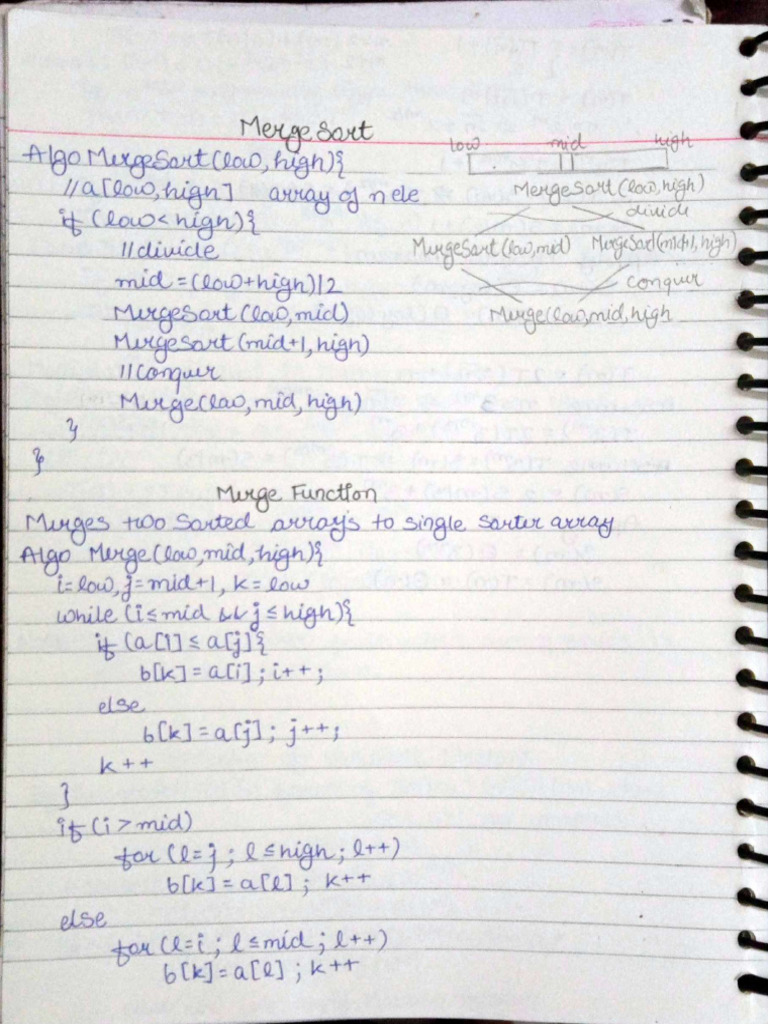 Merge Sort
low mid high
Algo MergeSort(low, high){
//a[low, high] array of n ele
if (low < high){
//divide
mid = (low+high)/2
MergeSort (low, mid)
MergeSort (mid+1, high)
//Conquer
Merge(low, mid, high)
}
}
MergeSort (low, high)
divide
MergeSort (low, mid) MergeSort(mid+1, high)
conquer
Merge(low, mid, high
Merge Function
Merges two sorted arrays to single sorter array
Algo Merge(low, mid, high){
i=low, j=mid+1, k=low
while (i ≤ mid && j ≤ high){
if (a[i] ≤ a[j]{
b[k] = a[i] ; i++ ;
else
b[k] = a[j] ; j++ ;
k++
}
if (i > mid)
for (l=j ; l ≤ high ; l++)
b[k] = a[l] ; k++
else
for (l=i ; l ≤ mid ; l++)
b[k] = a[l] ; k++